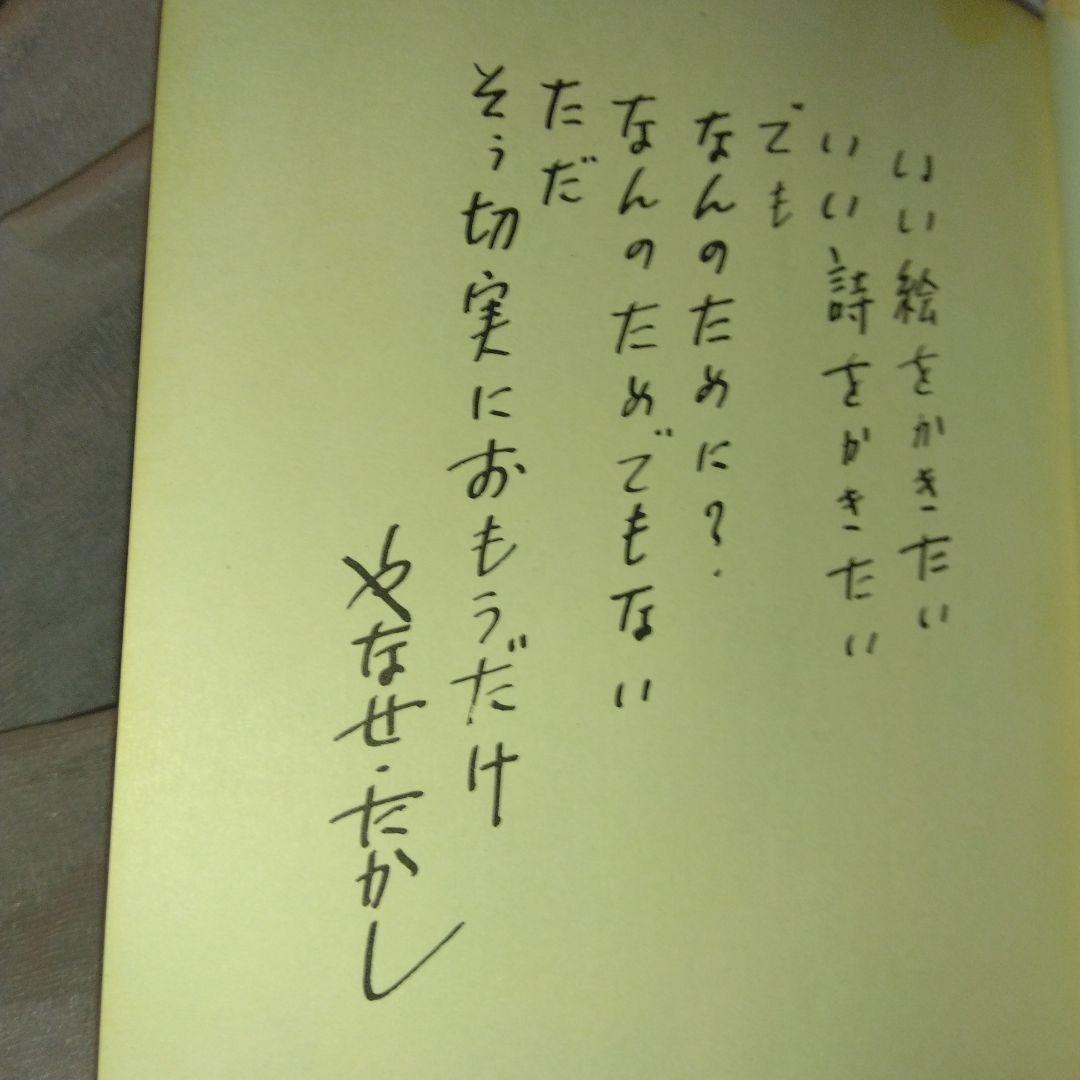 いい絵をかきたい
いい詩をかきたい
でも
なんのために?
なんのためでもない
ただ
そう切実におもうだけ
やなせ・たかし